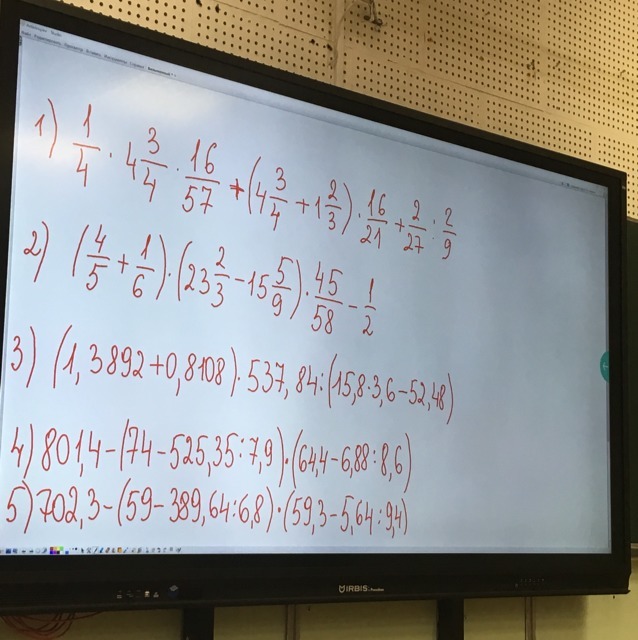 1) 1/4 · 4 3/4 · 16/57 + (4 3/4 + 1 2/3) · 16/21 + 2/27 : 2/9
2) (4/5 + 1/6) · (23 2/3 - 15 5/9) · 45/58 - 1/2
3) (1,3892+0,8108) · 537,84 : (15,8·3,6-52,48)
4) 801,4-(74-525,35:7,9)·(64,4-6,88:8,6)
5) 702,3-(59-389,64:6,8)·(59,3-5,64:9,4)
IRBIS